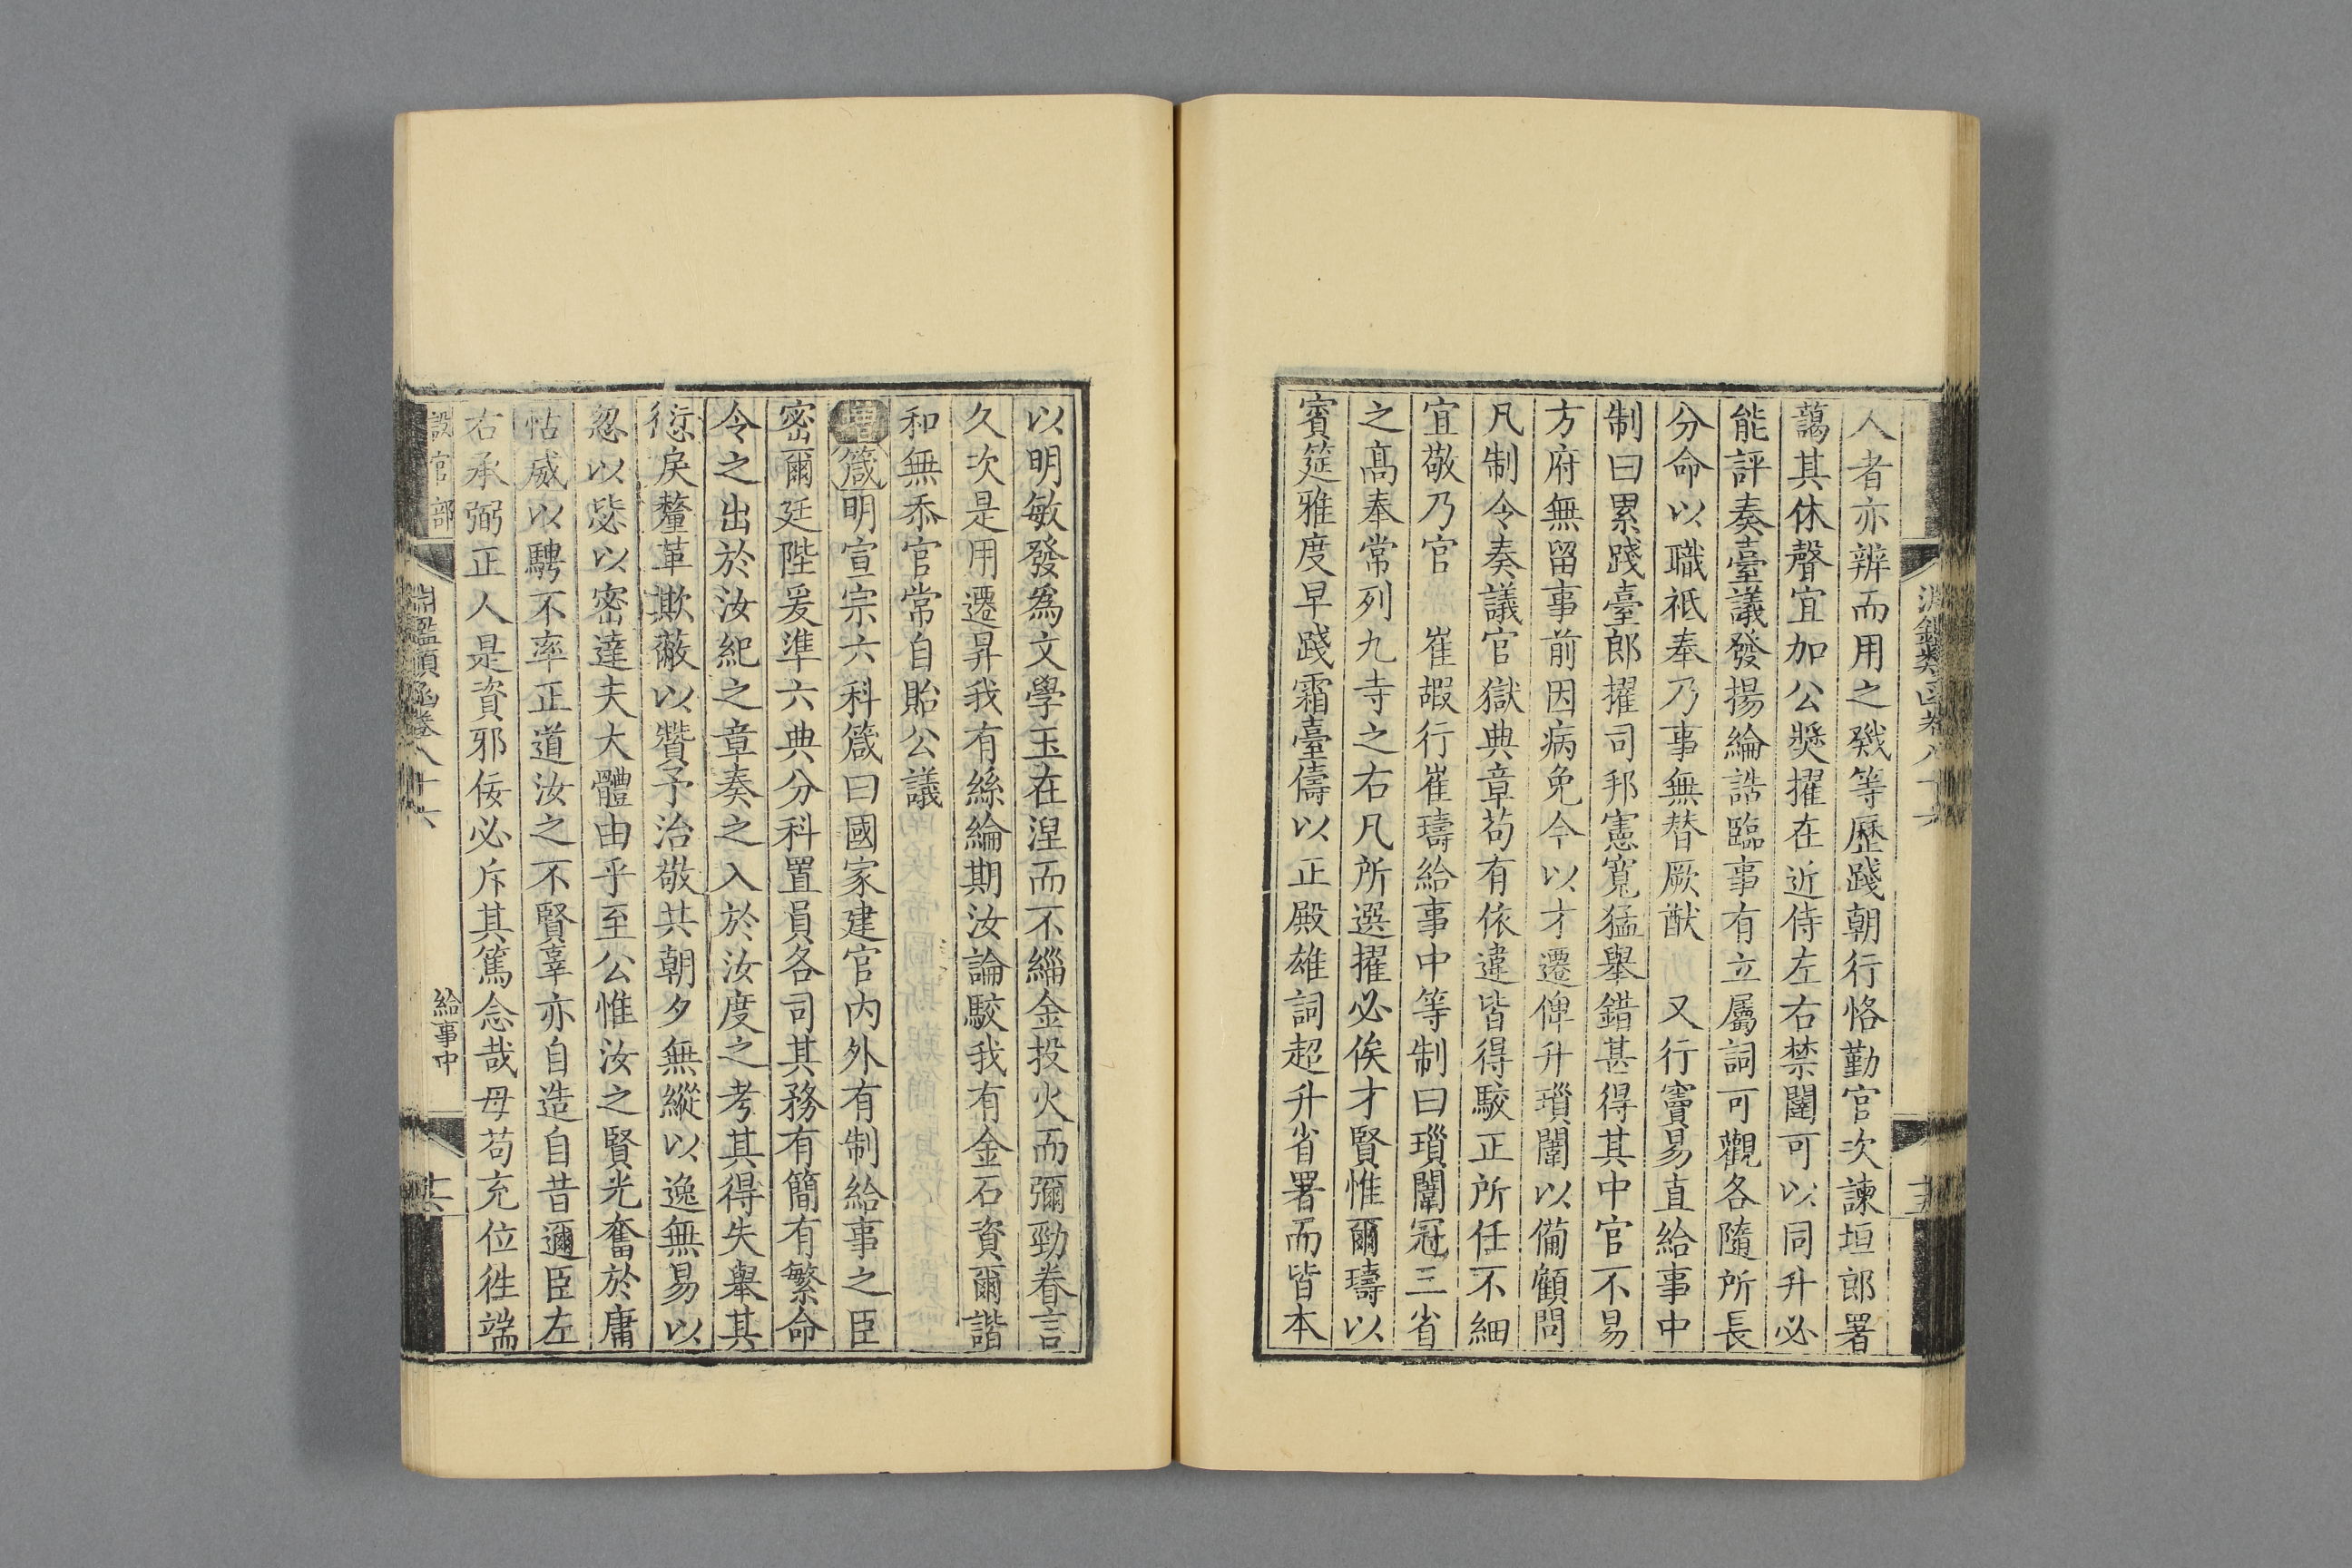 淵鑑類函卷八十六
人者亦辨而用之戣等歷踐朝行恪勤官次諫垣郎署
藹其休聲宜加公奬擢在近侍左右禁闥可以同升必
能評奏臺議發揚綸誥臨事有立屬詞可觀各隨所長
分命以職祇奉乃事無替厥猷　又行竇易直給事中
制曰累踐臺郎擢司邦憲寬猛舉錯甚得其中官不易
方府無留事前因病免今以才遷俾升瑣闈以備顧問
凡制令奏議官獄典章苟有依違皆得駮正所任不細
宜敬乃官　崔嘏行崔璹給事中等制曰瑣闈冠三省
之髙奉常列九寺之右凡所選擢必俟才賢惟爾璹以
賓筵雅度早踐霜臺儔以正殿雄詞超升省署而皆本
以明敏發爲文學玉在涅而不緇金投火而彌勁眷言
久次是用遷昇我有絲綸期汝論駮我有金石資爾諧
和無忝官常自貽公議
增箴明宣宗六科箴曰國家建官内外有制給事之臣
密爾廷陛爰準六典分科置員各司其務有簡有繁命
令之出於汝紀之章奏之入於汝度之考其得失舉其
愆戾釐革欺蔽以贊予治敬共朝夕無縱以逸無易以
忽以毖以密達夫大體由乎至公惟汝之賢光奮於庸
怙威以騁不率正道汝之不賢辜亦自造自昔邇臣左
右承弼正人是資邪佞必斥其篤念哉毋苟充位徃端
設官部
淵鑑類函卷八十六
給事中
十六